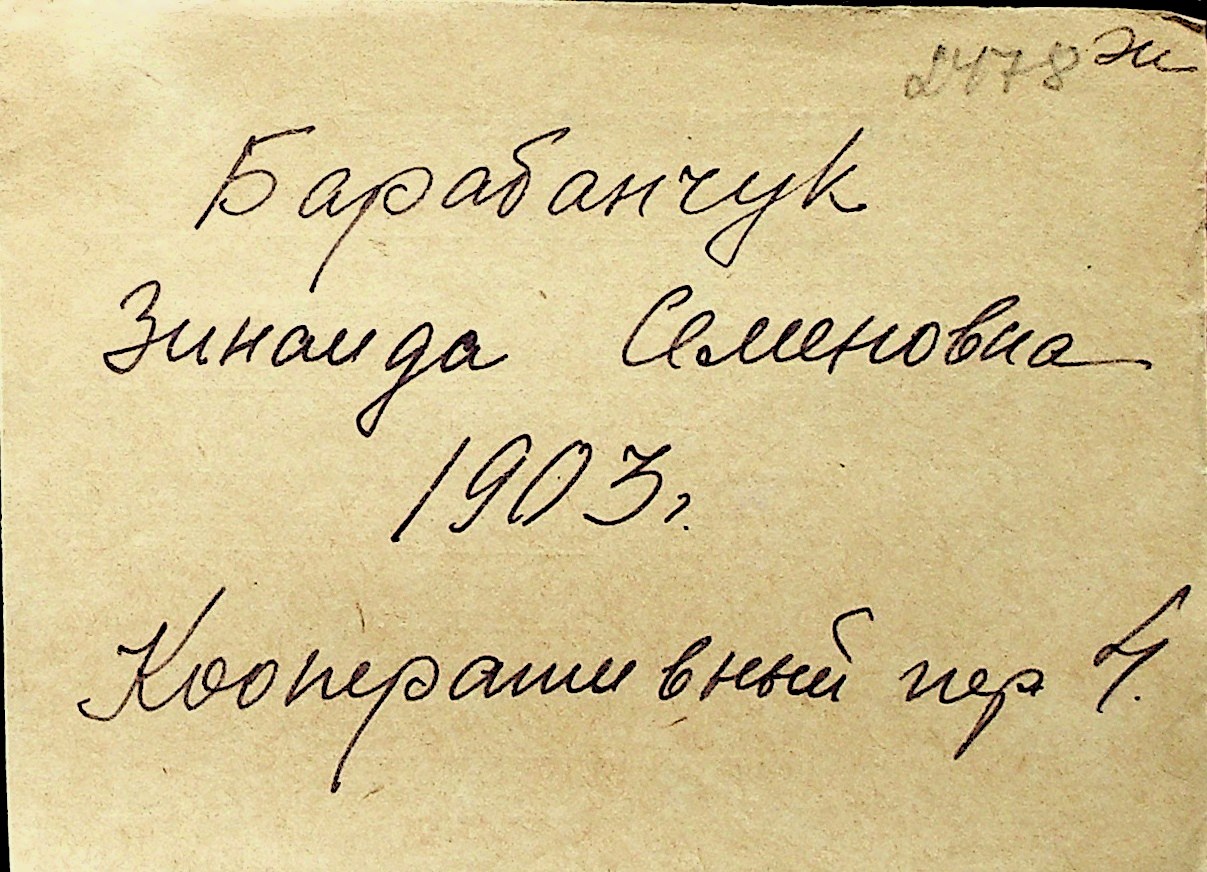 2478 ж
Барабанчук
Зинаида Семеновна
1903 г.
Кооперативный пер 4.